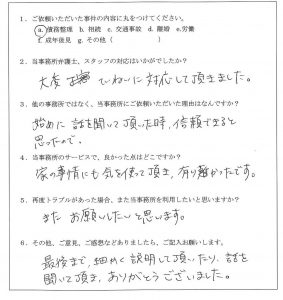 1．ご依頼いただいた事件の内容に丸をつけてください。
a.債務整理 b. 相続 c. 交通事故 d. 離婚 e.労働
f. 成年後見 g. その他（ ）
2．当事務所弁護士、スタッフの対応はいかがでしたか？
大変 ていねいに対応して頂きました。
3．他の事務所ではなく、当事務所にご依頼いただいた理由はなんですか？
始めに 話を聞いて頂いた時、信頼できると
思ったので。
4．当事務所のサービスで、良かった点はどこですか？
家の事情にも気を使って頂き、有り難かったです。
5．再度トラブルがあった場合、また当事務所を利用したいと思いますか？
また お願いしたいと思います。
6．その他、ご意見、ご感想などありましたら、ご記入お願いします。
最後まで、細かく説明して頂いたり、話を
聞いて頂き、ありがとうございました。